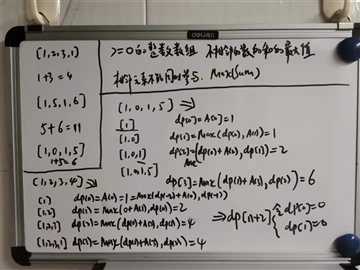 deli
[1,2,3,1]
1+3=4
[1,5,1,6]
5+6=11
[1,0,1,5]
1+5=6
>=0的整数数组 不相邻的数的和的最大值
相邻元素不能同时 Max(Sum)
[1,0,1,5] =>
[1] dp[0]=A[0]=1
[1,0] dp[1]=Max(dp[0],A[1])=1
[1,0,1] dp[2]=(dp[0]+A[2],dp[1])=2
Max
[1,0,1,5]
dp[3]=Max(dp[1]+A[3],dp[2])=6
[1,2,3,4] =>
[1] dp[0]=A[0]=1
[1,2] dp[1]=Max(0+A[1],dp[0])=2
[1,2,3] dp[2]=Max(dp[0]+A[2],dp[1])=4
dp[3]=Max(dp[1]+A[3],dp[2])=4
=> dp[n+2] { dp[0]=0
dp[1]=0